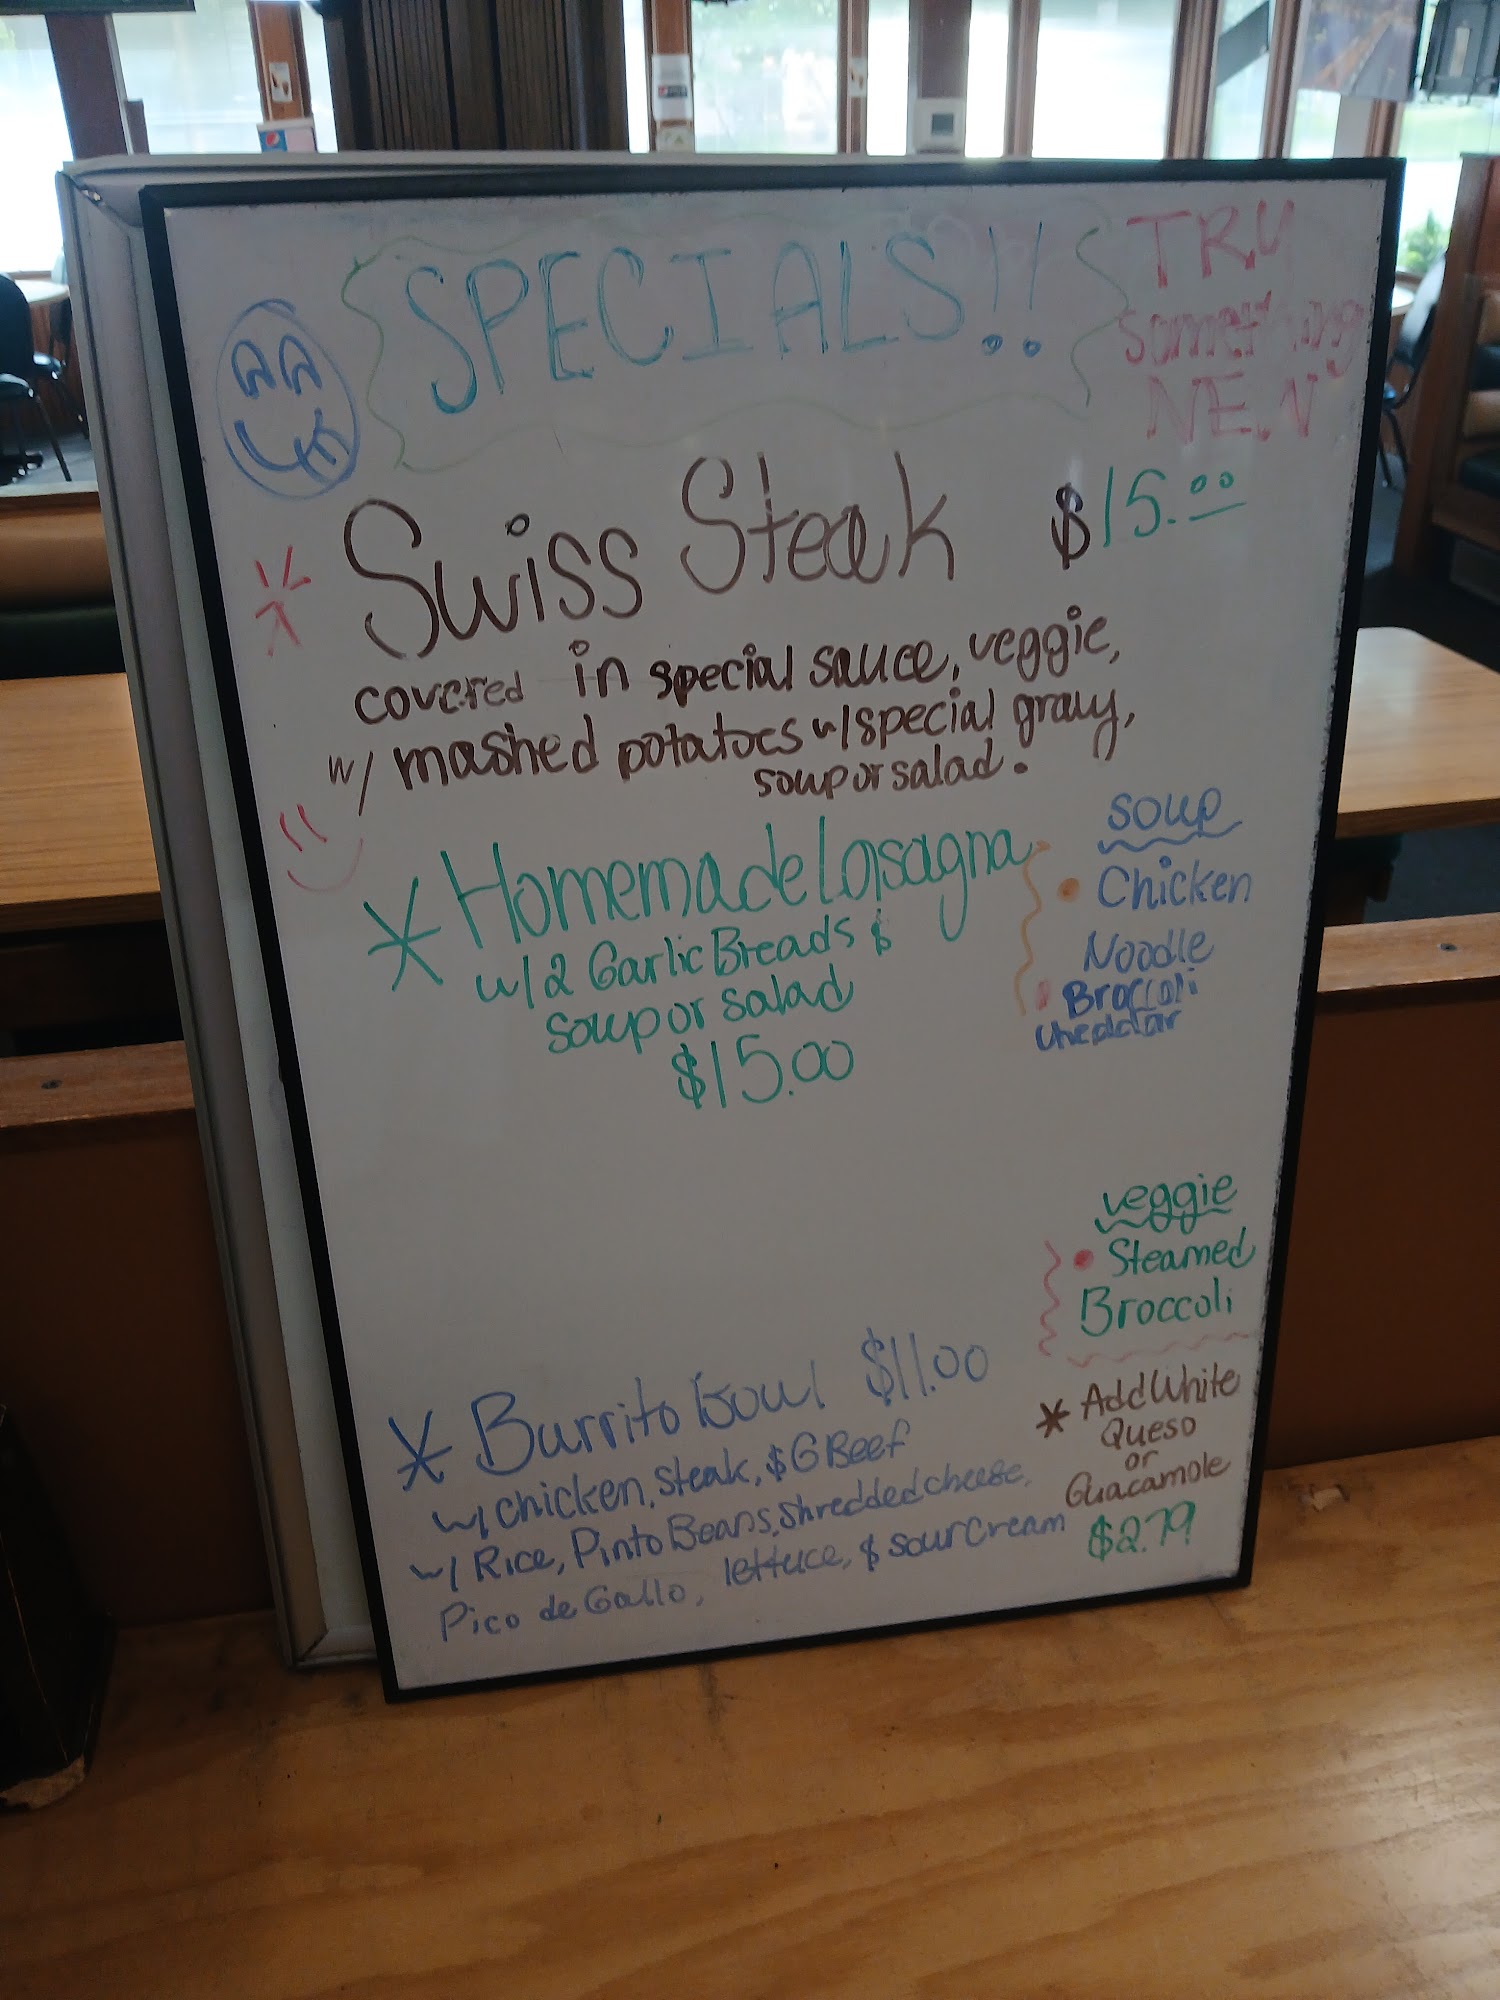 SPECIALS!!
TRY
something
NEW
Swiss Steak $15.00
covered in special sauce, veggie,
w/ mashed potatoes w/ special gravy,
soup or salad.
Homemade Lasagna
w/ 2 Garlic Breads &
soup or salad
$15.00
soup
• Chicken
Noodle
• Broccoli
cheddar
veggie
• Steamed
Broccoli
Burrito Bowl $11.00
w/ chicken, steak, & G Beef
w/ Rice, Pinto Beans, shredded cheese,
Pico de Gallo, lettuce, & sour cream
* Add White
Queso
or
Guacamole
$2.79